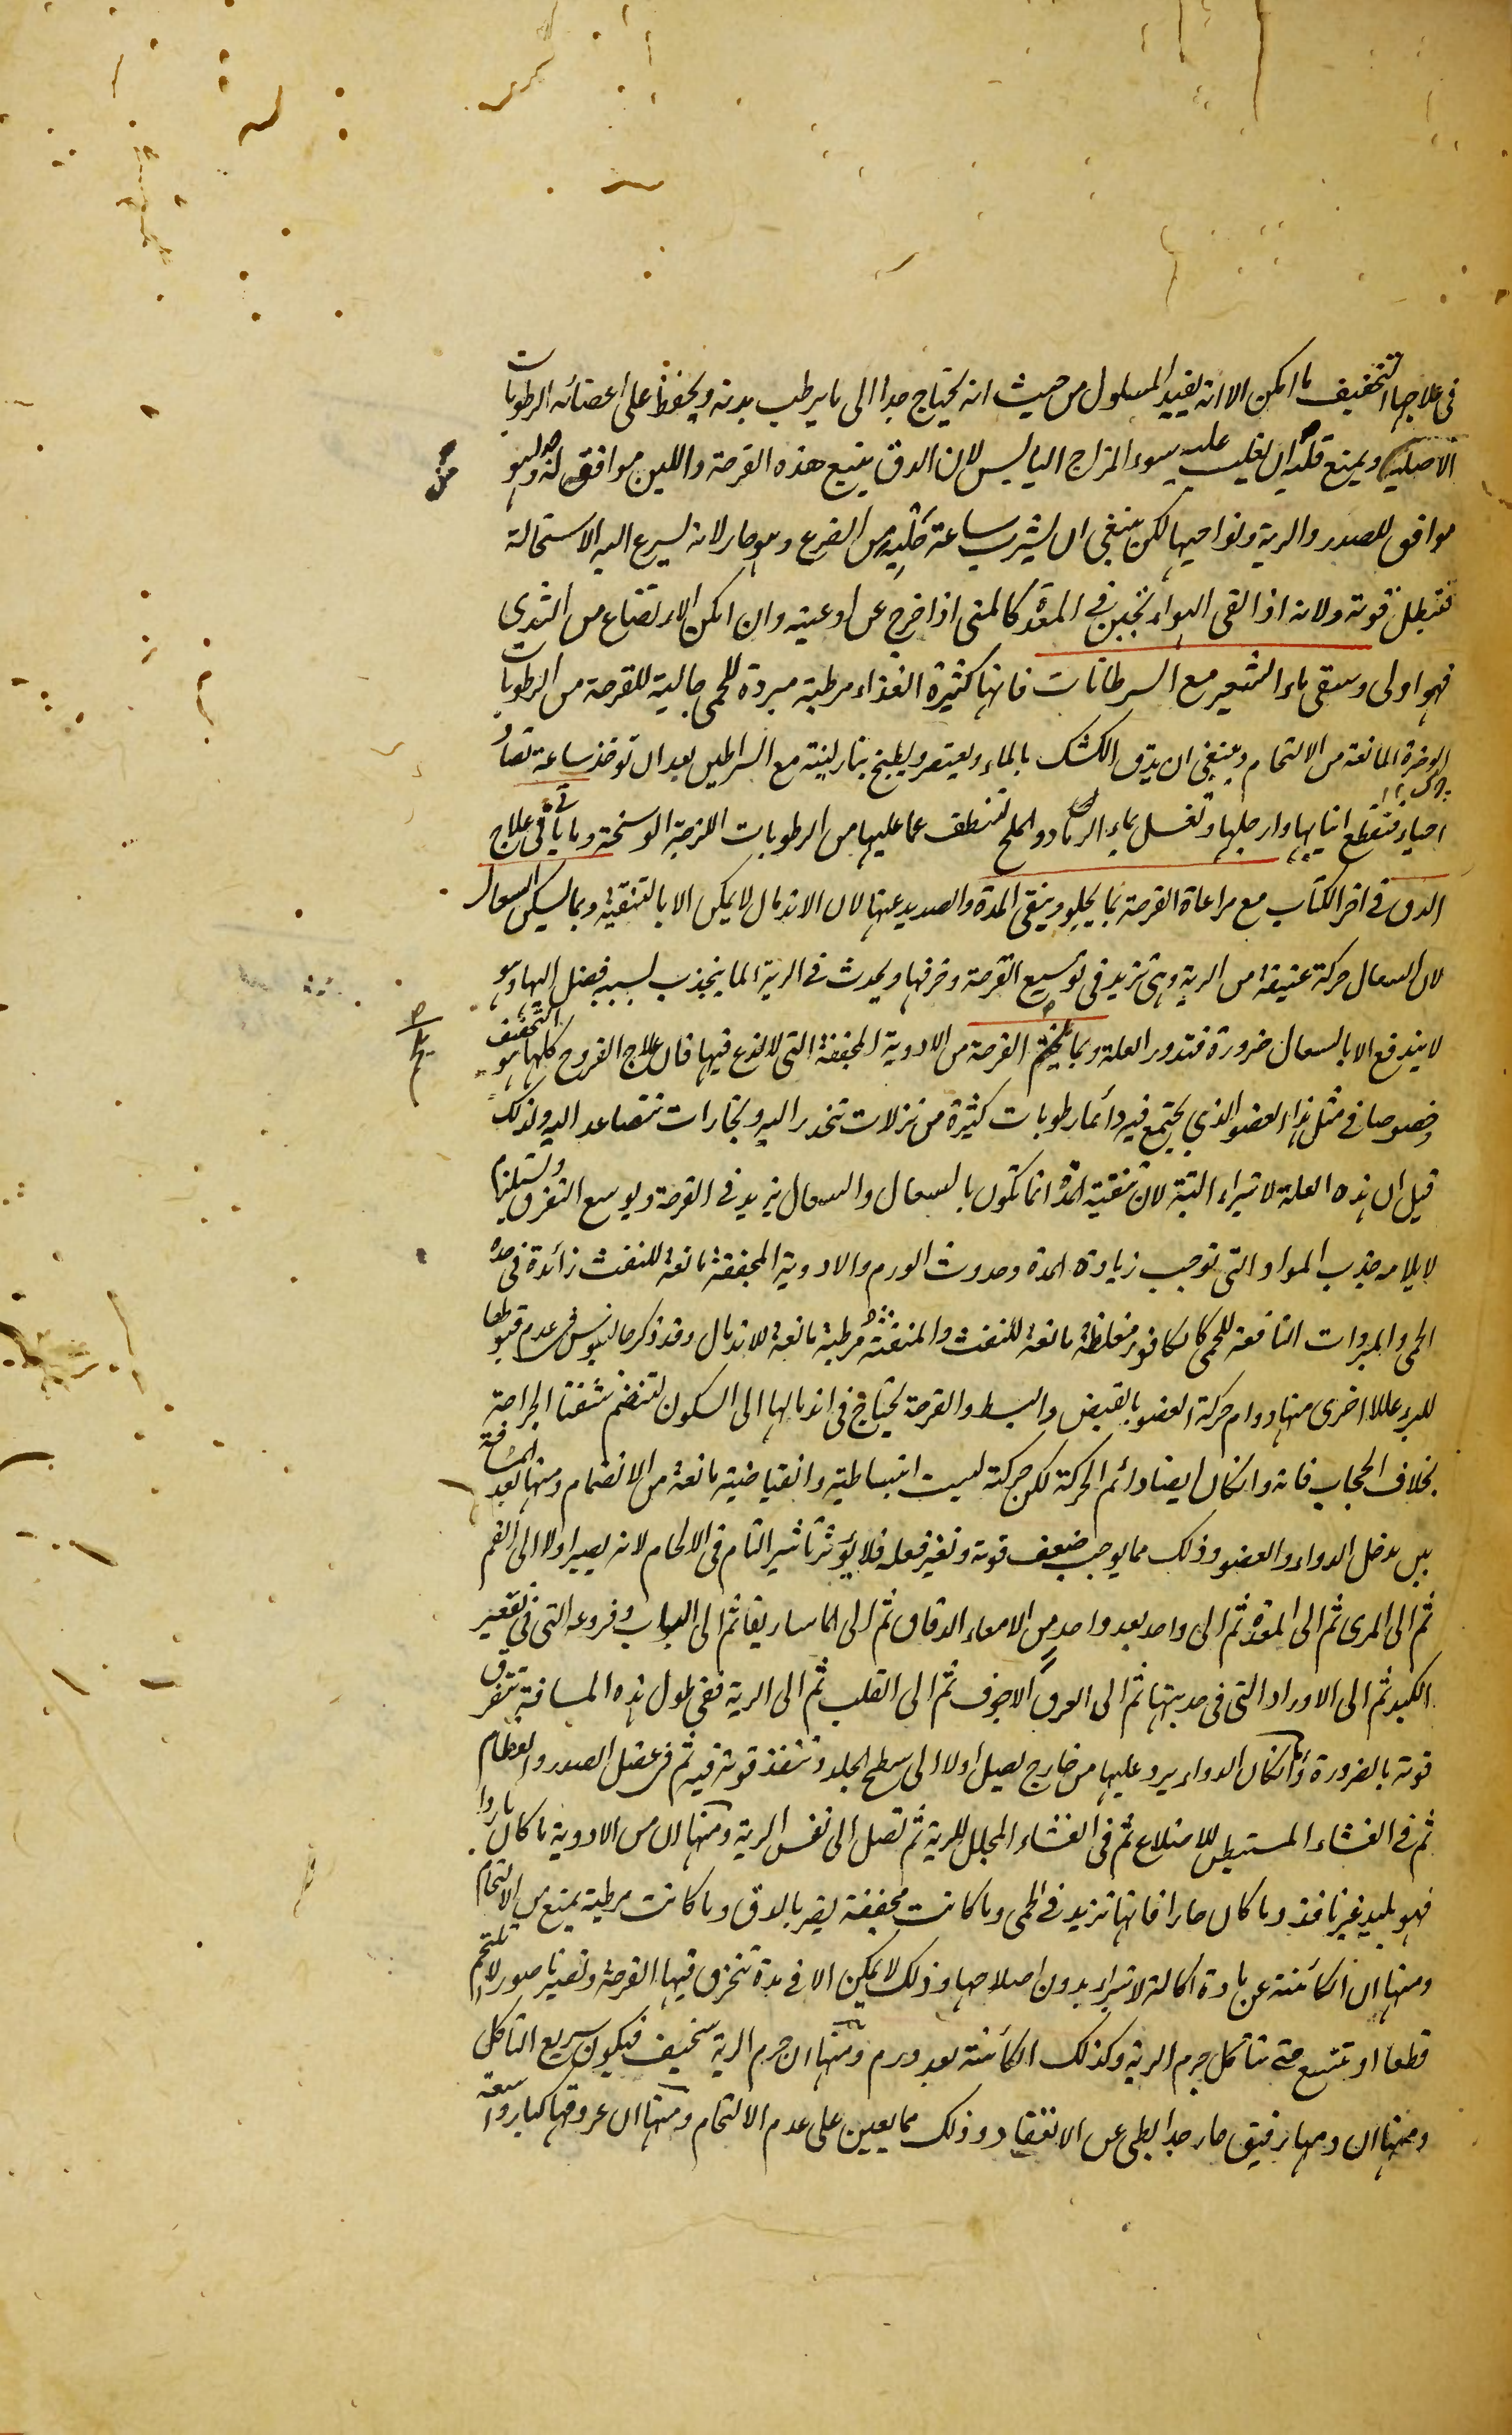 فى علاجها التجفيف ما امكن الا انه يفيد المسلول من حيث انه يحتاج جدا الى ما يرطب بدنه ويحفظ على اعضائه الرطوبات
الاصلية ويمنع قلبه ان يغلب عليه سوء المزاج اليابس لان الدق يتبع هذه القرحة واللبن موافق له وهو
موافق للصدر والرية ونواحيها لكن ينبغى ان يشرب ساعة حلبه من الضرع وهو حار لانه يسرع اليه الاستحالة
فتبطل قوته ولانه اذا لقى الهواء تجبن فى المعدة كالمنى اذا خرج عن اوعيته وان امكن الارتضاع من الثدى
فهو اولى وسقى ماء الشعير مع السرطانات فانها كثيرة الغذاء مرطبة مبردة للحمى جالية للقرحة من الرطوبات
الوضرة المانعة من الالتحام وينبغى ان يدق الكشك بالماء ويعتصر ويطبخ بنار لينة مع السراطين بعد ان توخذ ساعة تصاد
احياء فتقطع انيابها وارجلها وتغسل بماء الرماد والملح لتنظف عما عليها من الرطوبات اللزجة الوسخة وما ياتى فى علاج
الدق فى اخر الكتاب مع مراعاة القرحة بما يجلو وينقى المدة والصديد عنها لان الاندمال لا يمكن الا بالتنقية وبما يسكن السعال
لان السعال حركة عنيفة من الرية وهى تزيد فى توسيع القرحة وخرقها ويحدث فى الرية الما ينجذب بسببه فضل اليها وهو
لا يندفع الا بالسعال ضرورة فتدور العلة وبما يختم القرحة من الادوية المجففة التى لا لذع فيها فان علاج القروح كلها هو التجفيف
خصوصا فى مثل هذا العضو الذى يجتمع فيه دائما رطوبات كثيرة من نزلات تنحدر اليه وبخارات تتصاعد اليه ولذلك
قيل ان هذه العلة لا تبراء البتة لان تنقية المدة انما تكون بالسعال والسعال يزيد فى القرحة ويوسع التفرق ويستلزم
لايلامه جذب المواد التى توجب زيادة المدة وحدوث الورم والادوية المجففة مانعة للنفث زائدة فى حدة
الحمى والمبردات النافعة للحمى كالكافور مغلظة مانعة للنفث والمنفثة مرطبة مانعة للاندمال وقد ذكر جالينوس فى عدم قبولها
للبرء عللا اخرى منها دوام حركة العضو بالقبض والبسط والقرحة يحتاج فى اندمالها الى السكون لتنضم شفتا الجراحة
بخلاف الحجاب فانه وان كان ايضا دائم الحركة لكن حركته ليست انبساطية وانقباضية مانعة من الانضمام ومنها بعد المسافة
بين مدخل الدواء والعضو وذلك مما يوجب ضعف قوته وتغير فعله فلا يؤثر تاثير التام فى الالحام لانه يصير اولا الى الفم
ثم الى المرى ثم الى المعدة ثم الى واحد بعد واحد من الامعاء الدقاق ثم الى الماساريقا ثم الى الباب وفروعه التى فى تقعير
الكبد ثم الى الاوراد التى فى حدبتها ثم الى العرق الاجوف ثم الى القلب ثم الى الرية ففى طول هذه المسافة تتفرق
قوته بالضرورة وان كان الدواء يرد عليها من خارج يصل اولا الى سطح الجلد وتنفذ قوته فيه ثم فى عضل الصدر والعظام
ثم فى الغشاء المستبطن للاضلاع ثم فى الغشاء المجلل للرية ثم تصل الى نفس الرية ومنها ان من الادوية ما كان باردا
فهو بليد غير نافذ وما كان حارا فانها تزيد فى الحمى وما كانت مجففة يضر بالدق وما كانت مرطبة يمنع من الالتحام
ومنها ان الكائنة عن مادة اكالة لا تبراء بدون اصلاحها وذلك لا يمكن الا فى مدة تنخرق فيها القرحة وتصير ناصورا لا يلتحم
قطعا او تتسع حتى تتاكل جرم الرية وكذلك الكائنة بعد ورم ومنها ان جرم الرية سخيف فيكون سريع التاكل
ومنها ان دمها رقيق حار جدا بطى عن الانعقاد وذلك مما يعين على عدم الالتحام ومنها ان عروقها كبار واسعة